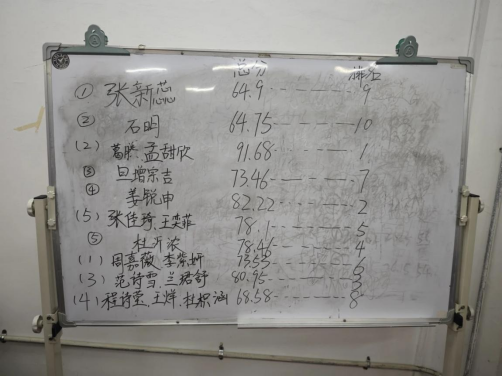 总分 排名
① 张新芯 64.9 9
② 石明 64.75 10
(2) 葛 孟甜欣 91.68 1
③ 旦增宗吉 73.46 7
④ 姜锐申 82.22 2
(5) 张佳琦、王奕菲 78.1 5
⑤ 杜亓浓 78.46 4
(1) 周嘉薇、李紫妍 73.53 6
(3) 范诗雪、兰君舒 80.95 3
(4) 程诗莹、王烊、杜炽涵 68.58 8